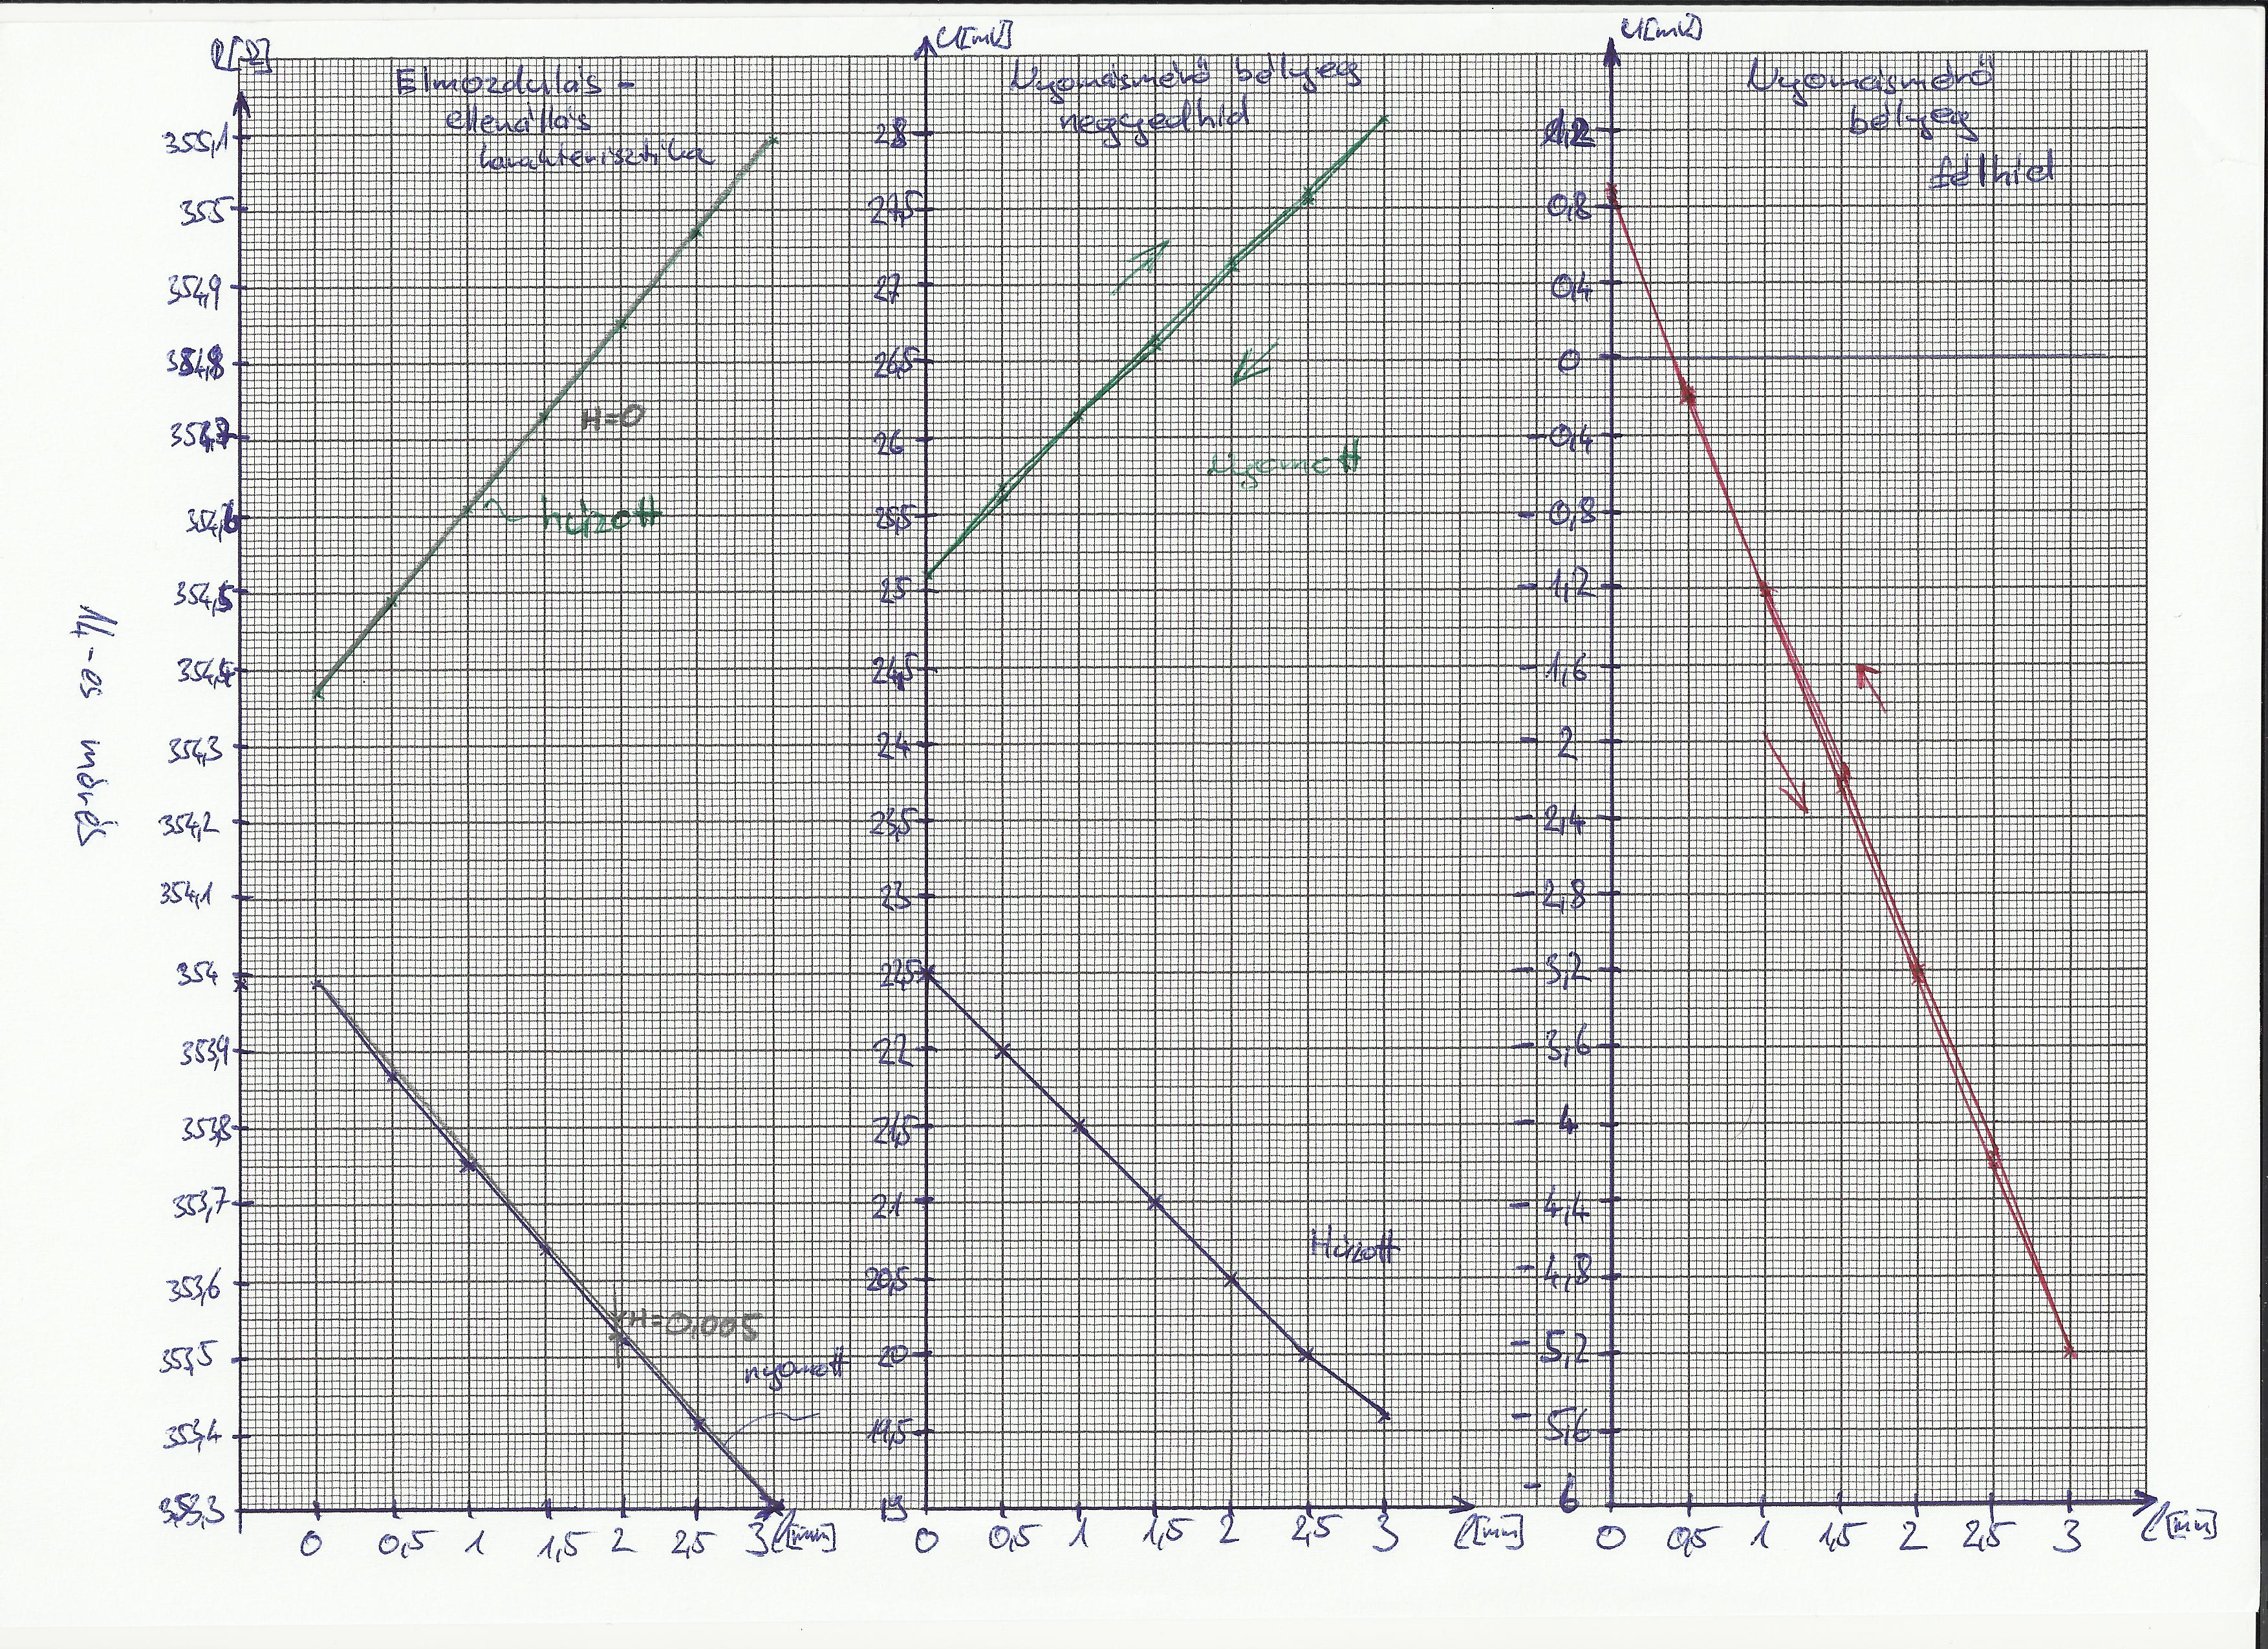 R[Ω]
Elmozdulás -
ellenállás
karakterisztika
355,1
355
354,9
354,8
354,7
354,6
354,5
354,4
354,3
354,2
354,1
354
353,9
353,8
353,7
353,6
353,5
353,4
353,3
H=0
húzott
H=0,005
nyomott
0 0,5 1 1,5 2 2,5 3 l[mm]
14-es mérés
U[mV]
Nyomásmérő bélyeg
negyedhíd
28
27,5
27
26,5
26
25,5
25
24,5
24
23,5
23
22,5
22
21,5
21
20,5
20
19,5
19
Nyomott
Húzott
0 0,5 1 1,5 2 2,5 3 l[mm]
U[mV]
Nyomásmérő
bélyeg
félhíd
1,2
0,8
0,4
0
-0,4
-0,8
-1,2
-1,6
-2
-2,4
-2,8
-3,2
-3,6
-4
-4,4
-4,8
-5,2
-5,6
-6
0 0,5 1 1,5 2 2,5 3 l[mm]